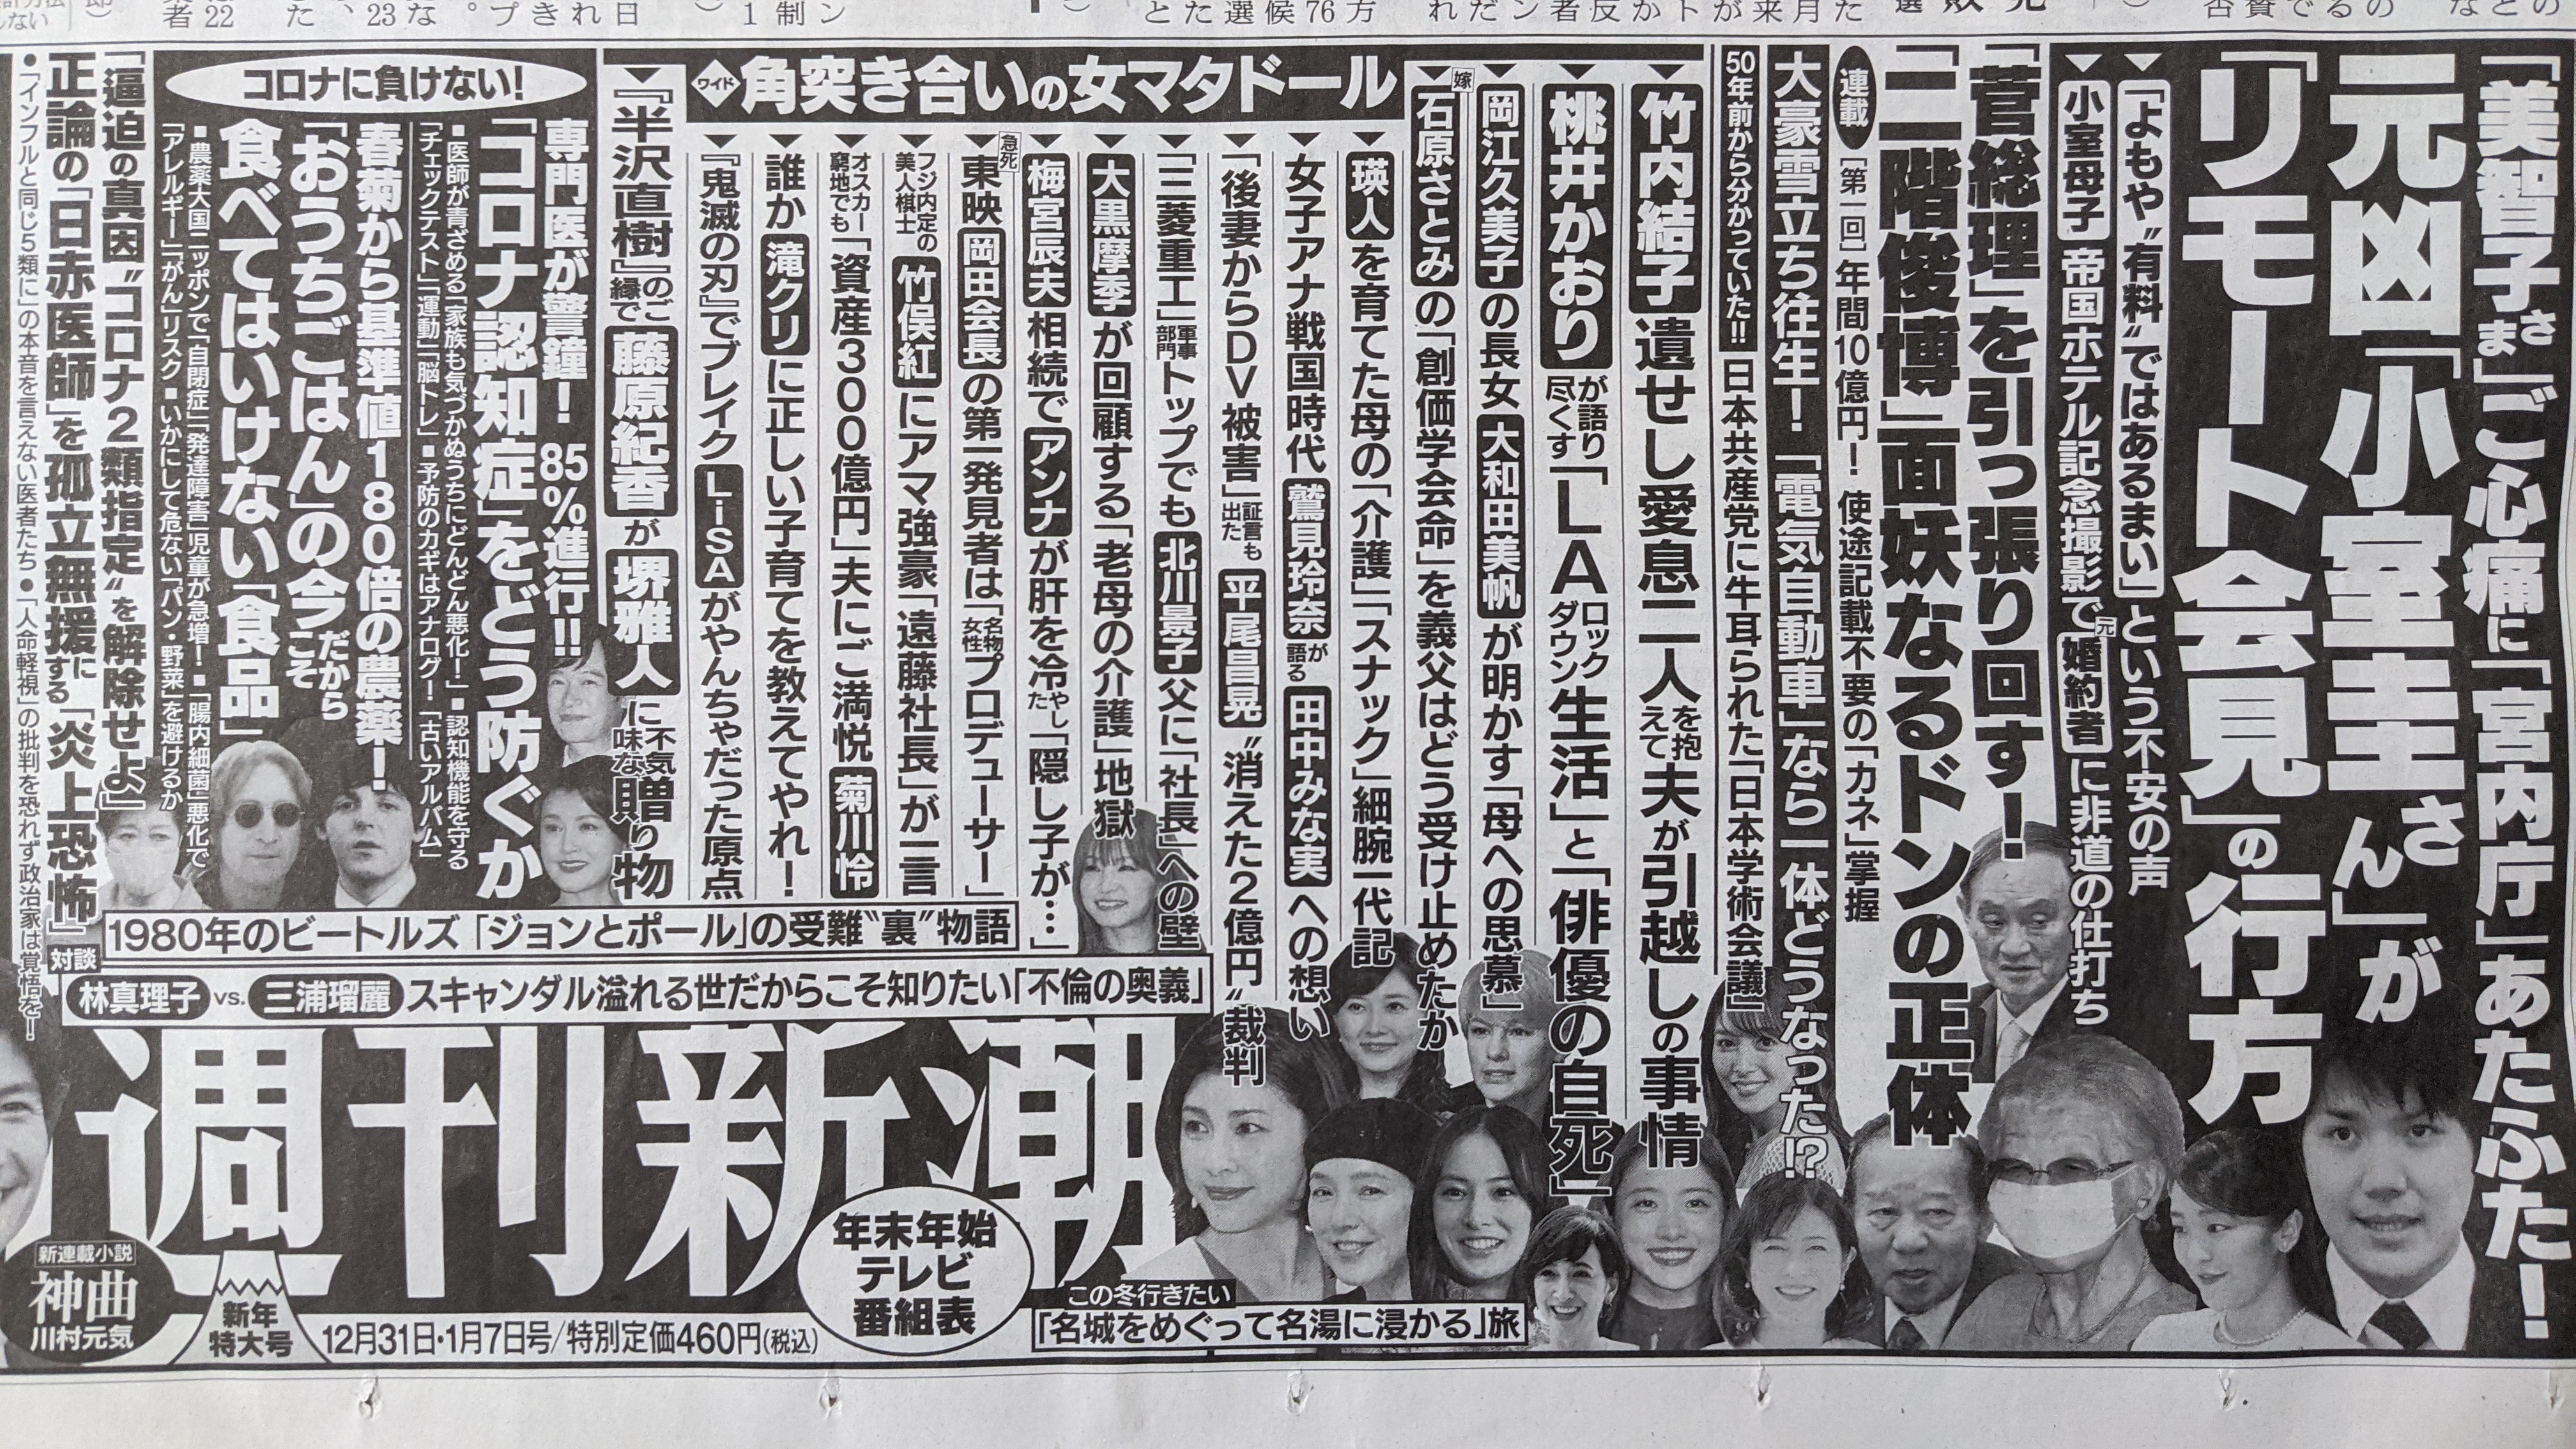 「美智子さま」ご心痛に「宮内庁」あたふた！
元凶「小室圭さん」が
「リモート会見」の行方
▼「よもや〝有料〟ではあるまい」という不安の声
▼小室母子 帝国ホテル記念撮影で元婚約者に非道の仕打ち
「菅総理」を引っ張り回す！
「二階俊博」面妖なるドンの正体
連載 [第一回] 年間10億円！ 使途記載不要の「カネ」掌握
大豪雪立ち往生！「電気自動車」なら一体どうなった!?
50年前から分かっていた!! 日本共産党に牛耳られた「日本学術会議」
ワイド 角突き合いの女マタドール
▼竹内結子 遺せし愛息二人を抱えて夫が引越しの事情
▼桃井かおりが語り尽くす「LAロックダウン生活」と「俳優の自死」
▼岡江久美子の長女 大和田美帆が明かす「母への思慕」
▼嫁 石原さとみの「創価学会命」を義父はどう受け止めたか
▼瑛人を育てた母の「介護」「スナック」細腕一代記
▼女子アナ戦国時代 鷲見玲奈が語る 田中みな実への想い
▼「後妻からDV被害」証言も出た 平尾昌晃〝消えた2億円〟裁判
▼「三菱重工」軍事部門トップでも 北川景子父に「社長」への壁
▼大黒摩季が回顧する「老母の介護」地獄
▼梅宮辰夫 相続でアンナが肝を冷やした「隠し子が…」
▼東映 急死 岡田会長の第一発見者は「名物女性プロデューサー」
▼フジ内定の美人棋士 竹俣紅にアマ強豪「遠藤社長」が一言
▼オスカー窮地でも「資産300億円」夫にご満悦 菊川怜
▼誰か滝クリに正しい子育てを教えてやれ！
▼『鬼滅の刃』でブレイクLiSAがやんちゃだった原点
▼『半沢直樹』のご縁で 藤原紀香が堺雅人に不気味な贈り物
コロナに負けない！
専門医が警鐘！ 85％進行!!
「コロナ認知症」をどう防ぐか
■医師が青ざめる「家族も気づかぬうちにどんどん悪化！」■認知機能を守る
「チェックテスト」「運動」「脳トレ」■予防のカギはアナログ！「古いアルバム」
春菊から基準値180倍の農薬！
「おうちごはん」の今だからこそ
食べてはいけない「食品」
■農薬大国ニッポンで「自閉症」「発達障害」児童が急増！■「腸内細菌」悪化で
「アレルギー」「がん」リスク■いかにして危ない「パン・野菜」を避けるか
「逼迫の真因〝コロナ2類指定〟を解除せよ」
正論の「日赤医師」を孤立無援にする「炎上恐怖」
●「インフルと同じ5類に」の本音を言えない医者たち ●「人命軽視」の批判を恐れず政治家は覚悟を！
1980年のビートルズ「ジョンとポール」の受難〝裏〟物語
対談
林真理子 vs. 三浦瑠麗 スキャンダル溢れる世だからこそ知りたい「不倫の奥義」
週刊新潮
新連載小説
神曲
川村元気
新年
特大号
12月31日・1月7日号/特別定価460円(税込)
年末年始
テレビ
番組表
この冬行きたい
「名城をめぐって名湯に浸かる」旅